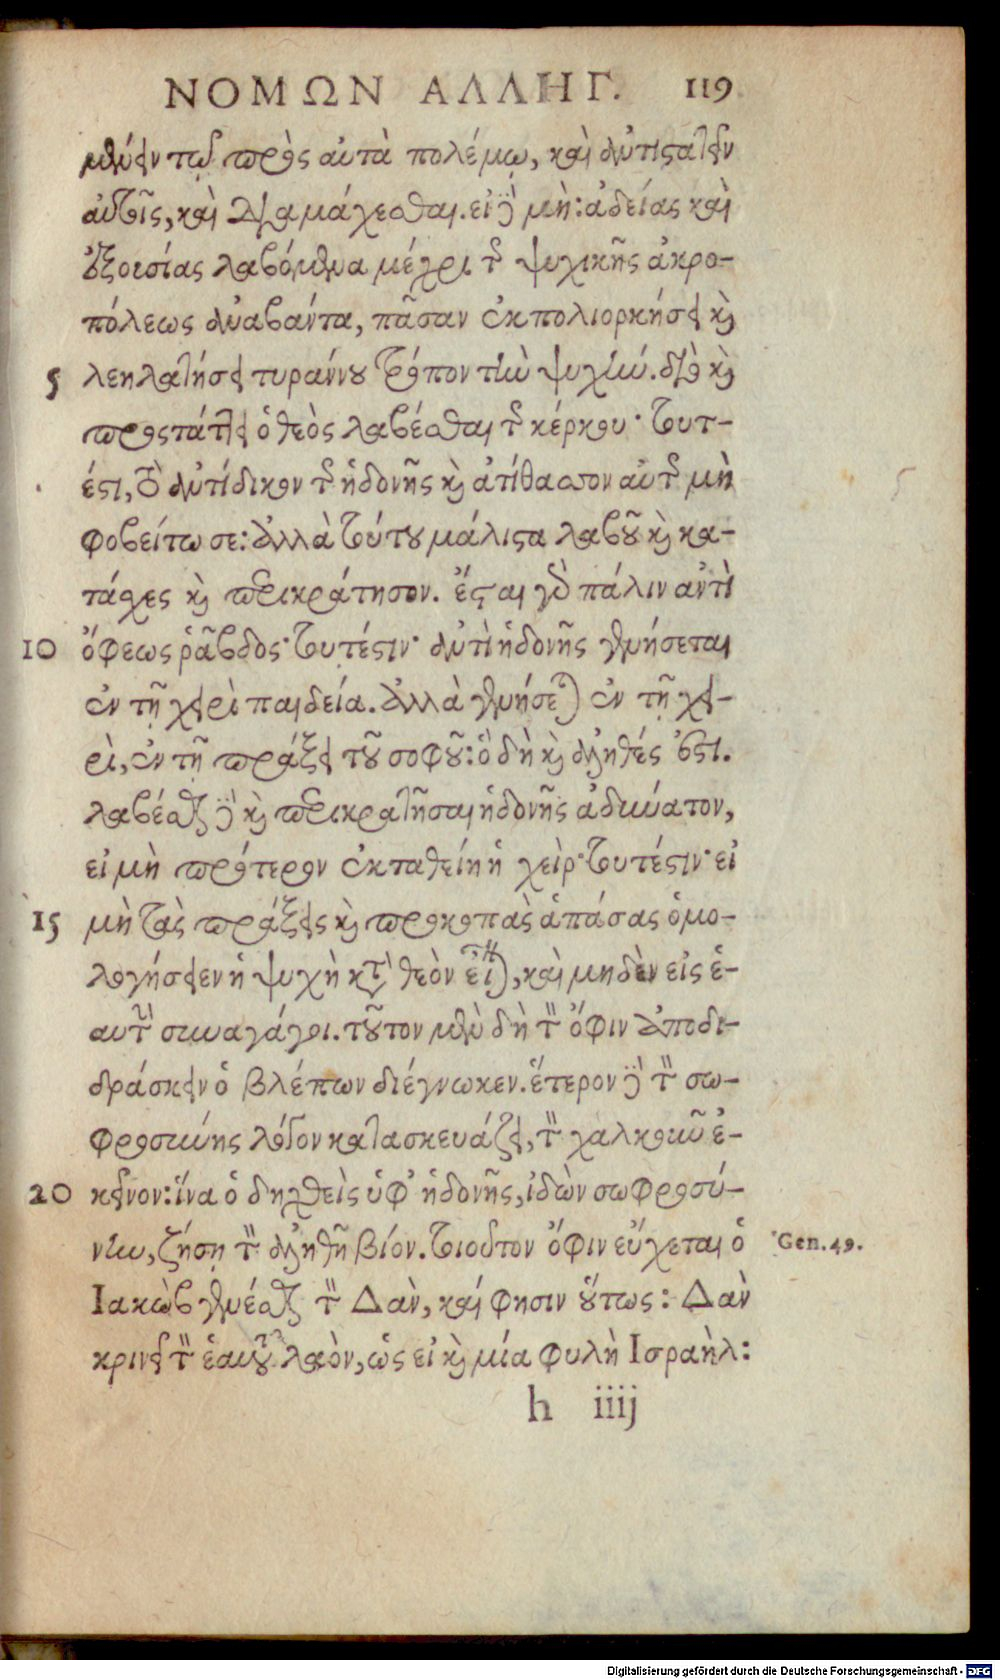 ΝΟΜΩΝ ΑΛΛΗΓ. 119
μένειν τῷ πρὸς αὐτὰ πολέμῳ, καὶ ἀντιστατεῖν
αὐτοῖς, καὶ διαμάχεσθαι. εἰ δὲ μὴ: ἀδείας καὶ
ἐξουσίας λαβόμενα μέχρι τῆς ψυχικῆς ἀκρο-
πόλεως ἀναβάντα, πᾶσαν ἐκπολιορκήσει καὶ
5 λεηλατήσει τυράννου τρόπον τὴν ψυχήν. διὸ καὶ
προστάττει ὁ θεὸς λαβέσθαι τῆς κέρκου· τουτ-
έστι, τὸ ἀντίδικον τῆς ἡδονῆς καὶ ἀτίθασσον αὐτῆς μὴ
φοβείτω σε: ἀλλὰ τούτου μάλιστα λαβοῦ καὶ κα-
τάσχες καὶ περικράτησον. ἔσται γὰρ πάλιν ἀντὶ
10 ὄφεως ῥάβδος· τουτέστιν· ἀντὶ ἡδονῆς γενήσεται
ἐν τῇ χειρὶ παιδεία. ἀλλὰ γενήσεται ἐν τῇ χει-
ρὶ, ἐν τῇ πράξει τοῦ σοφοῦ: ὃ δὴ καὶ ἀληθές ἐστι.
λαβέσθαι δὲ καὶ περικρατῆσαι ἡδονῆς ἀδύνατον,
εἰ μὴ πρότερον ἐκταθείη ἡ χείρ· τουτέστιν· εἰ
15 μὴ τὰς πράξεις καὶ προκοπὰς ἁπάσας ὁμο-
λογήσειεν ἡ ψυχὴ κατὰ θεὸν εἶναι, καὶ μηδὲν εἰς ἑ-
αυτὴν συναγάγοι. τοῦτον μὲν δὴ τὸν ὄφιν ἀποδι-
δράσκειν ὁ βλέπων διέγνωκεν. ἕτερον δὲ τὸν σω-
φροσύνης λόγον κατασκευάζει, τὸν χαλκοῦν ἐ-
20 κεῖνον: ἵνα ὁ δηχθεὶς ὑφ᾽ ἡδονῆς, ἰδὼν σωφροσύ-
νην, ζήσῃ τὸν ἀληθῆ βίον. τοιοῦτον ὄφιν εὔχεται ὁ Gen. 49.
Ἰακὼβ γενέσθαι τὸν Δὰν, καί φησιν οὕτως: Δὰν
κρινεῖ τὸν ἑαυτοῦ λαὸν, ὡς εἰ καὶ μία φυλὴ Ἰσραήλ:
h iiij
Digitalisierung gefördert durch die Deutsche Forschungsgemeinschaft - DFG